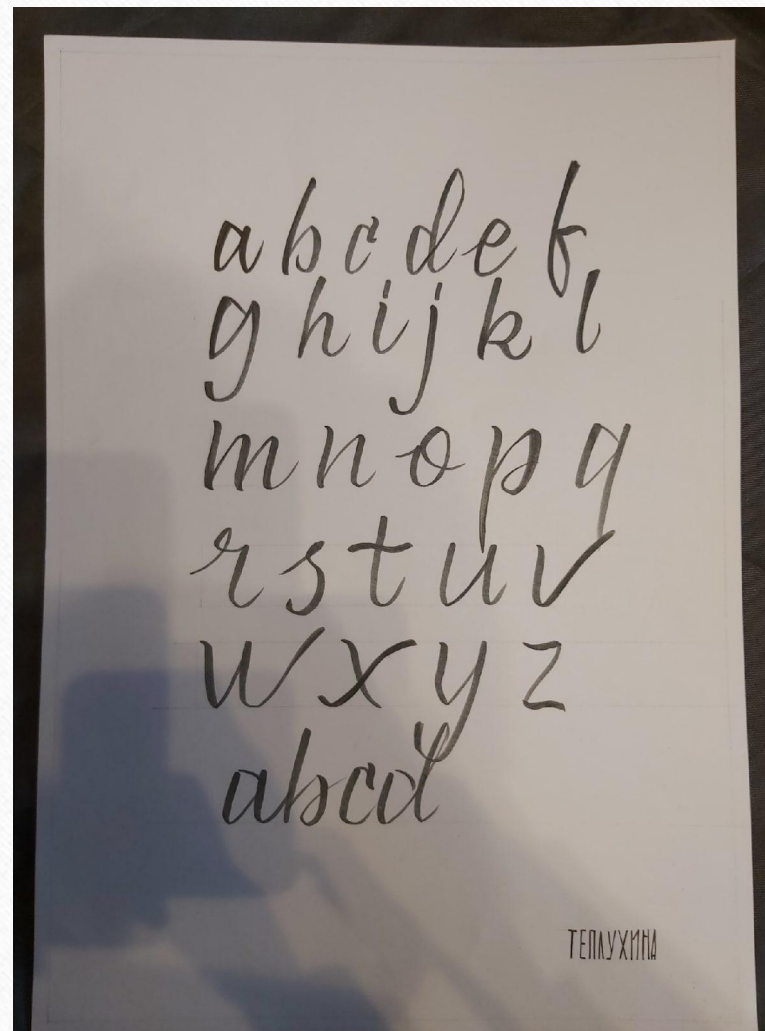 a b c d e f
g h i j k l
m n o p q
r s t u v
w x y z
abcd
ТЕПЛУХИНА